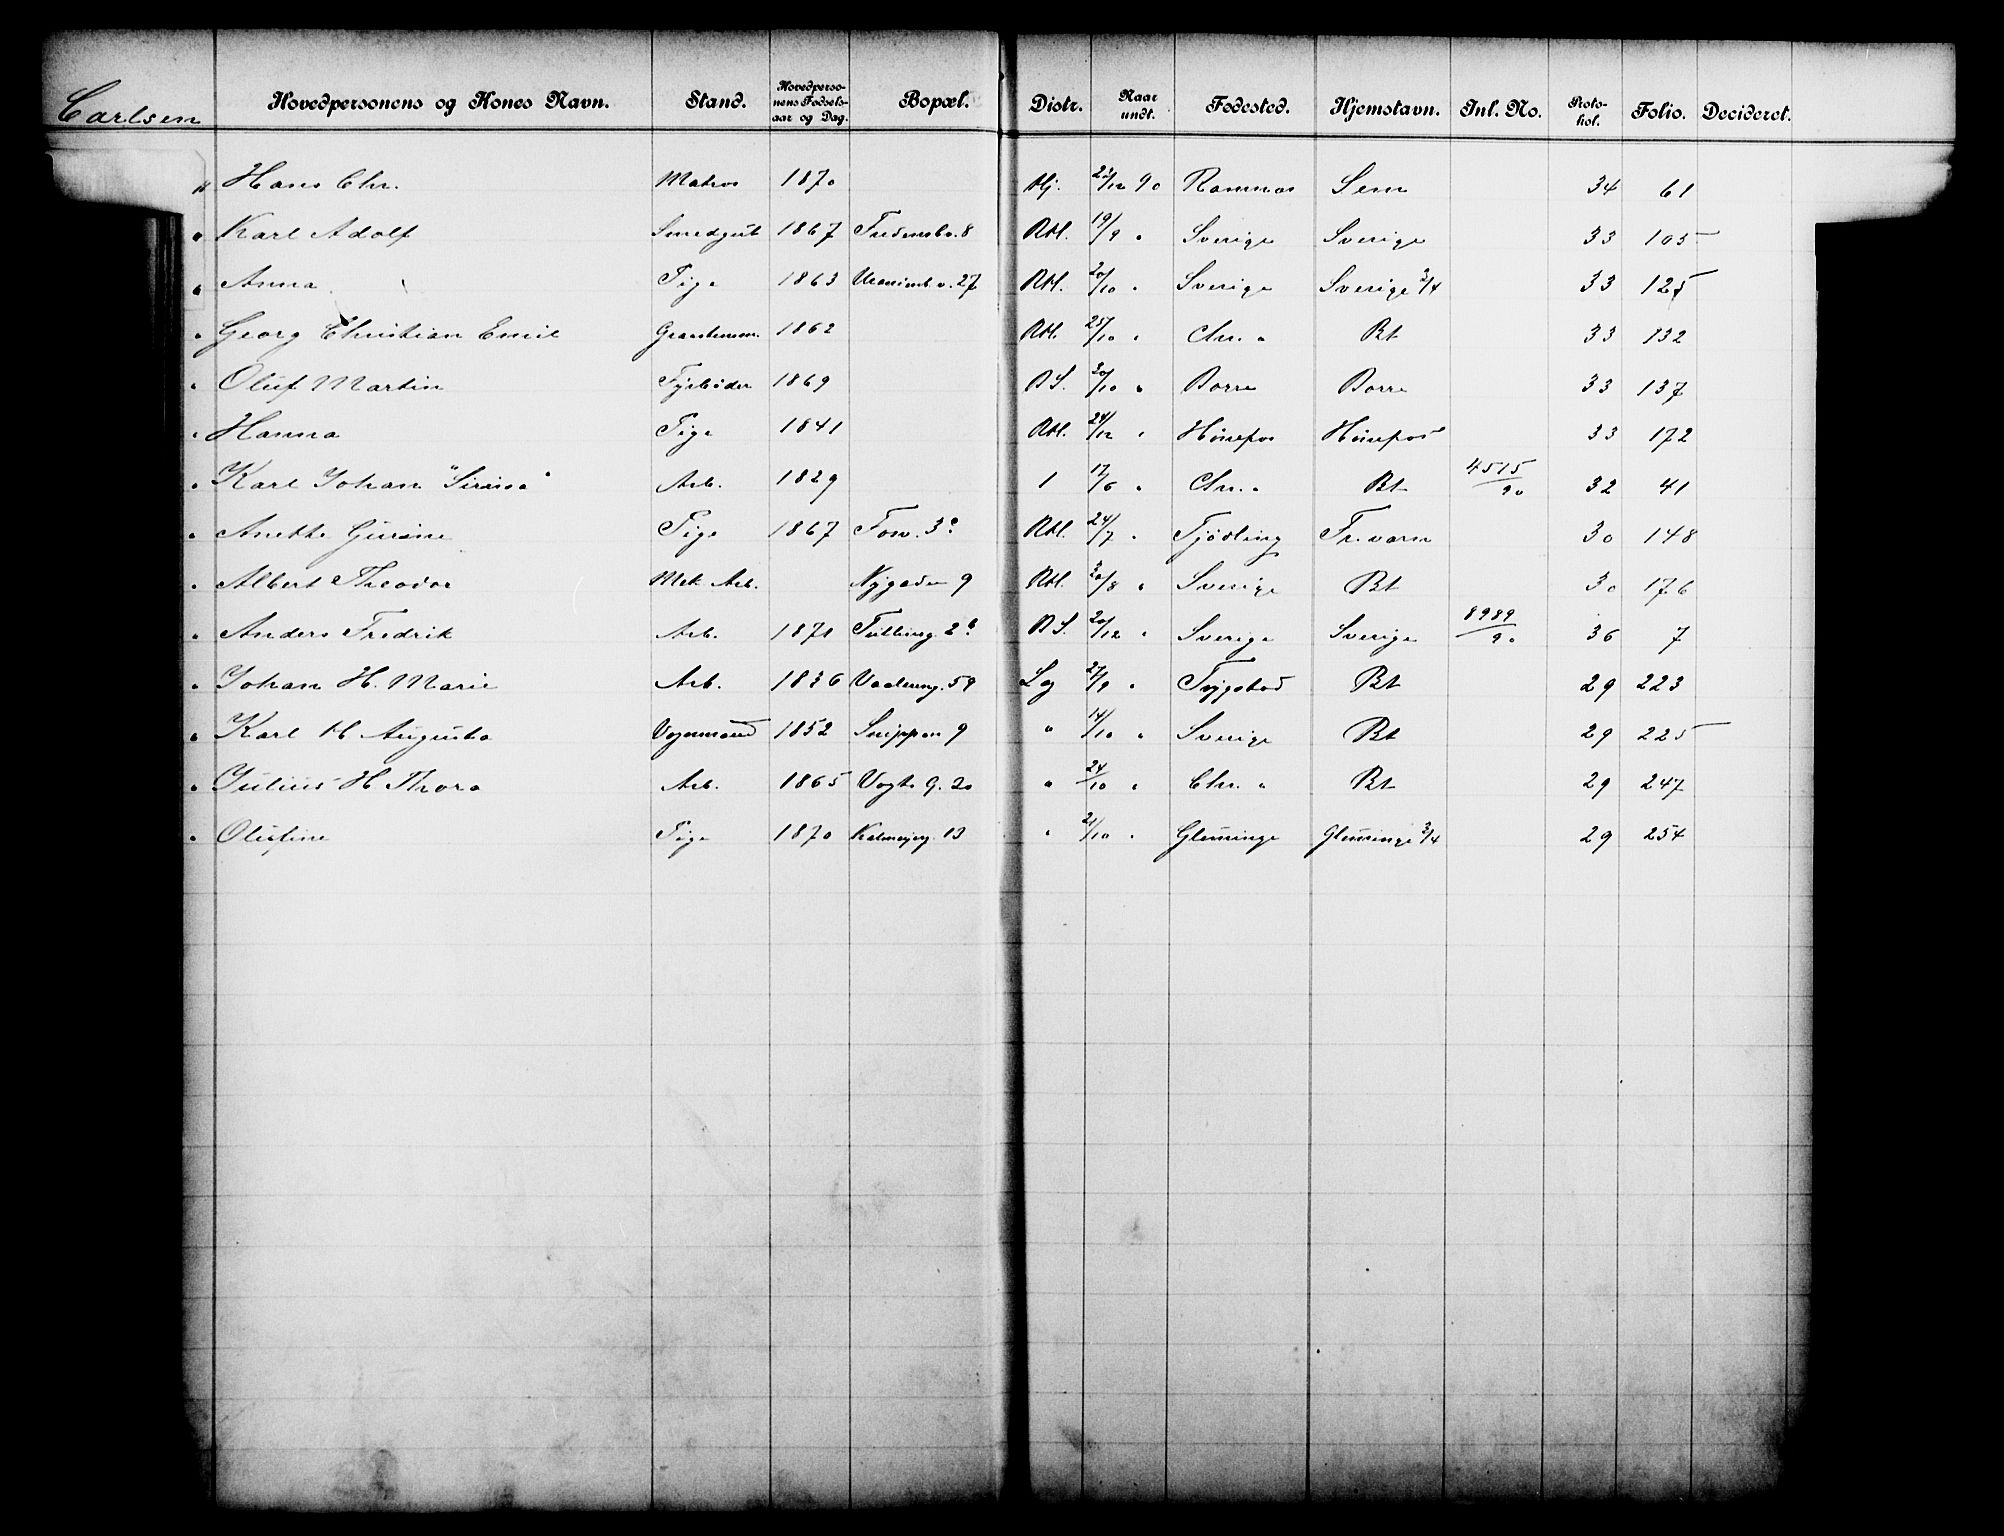 Carlsen Hovedpersonens og Kones Navn. Stand. Hovedpersonens Fødselsaar og Dag. Bopæl. Distr. Naar undt. Fødested. Hjemstavn. Inl. No. Protokol. Folio. Decideret.
" Hans Chr. Matros 1870 Hj. 90 Ramnæs Sem 34 61
" Karl Adolf Smedgut 1867 8 Rbl. 19/9 " Sverige Sverige 33 105
" Anna Pige 1863 27 Rbl. 20/10 " Sverige Sverige 3/4 33 125
" Georg Christian Emil 1862 Rbl. 25/10 " Chr. a Bt 33 132
" Oluf Martin Fyrbøder 1869 B S. 20/10 " Borre Borre 33 137
" Hanna Pige 1841 Rbl. 24/12 " Hønefos Hønefos 33 172
" Karl Johan "Sirina" Arb. 1829 1 17/6 " Chr. a Bt 4515/90 32 41
" Anette Gurine Pige 1867 Rbl. 24/7 " Tjødling Fr.værn 30 148
" Albert Theodor Mek Arb. Nygaden 9 Rbl. 20/8 " Sverige Bt 30 176
" Anders Fredrik Arb. 1871 B S. 20/12 " Sverige Sverige 8989/90 36 7
" Johan H. Marie Arb. 1836 Vaalereng. 59 Lg 27/9 " Trygstad Bt 29 223
" Karl H Augusta Vognmand 1852 Snippen 9 " 14/10 " Sverige Bt 29 225
" Julius H Thora Arb. 1865 Vogts g. 20 " 24/10 " Chr. a Bt 29 247
" Olufine Pige 1870 Kalmejerg. 13 " 21/10 " Glemminge Glemminge 3/4 29 254